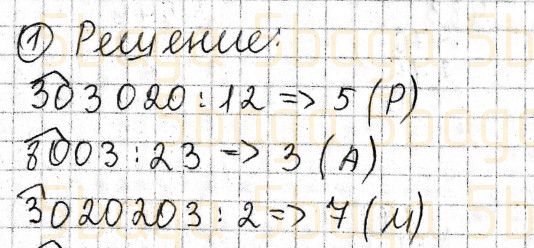 ① Решение:
303020 : 12 => 5 (Р)
8003 : 23 => 3 (А)
3020203 : 2 => 7 (М)